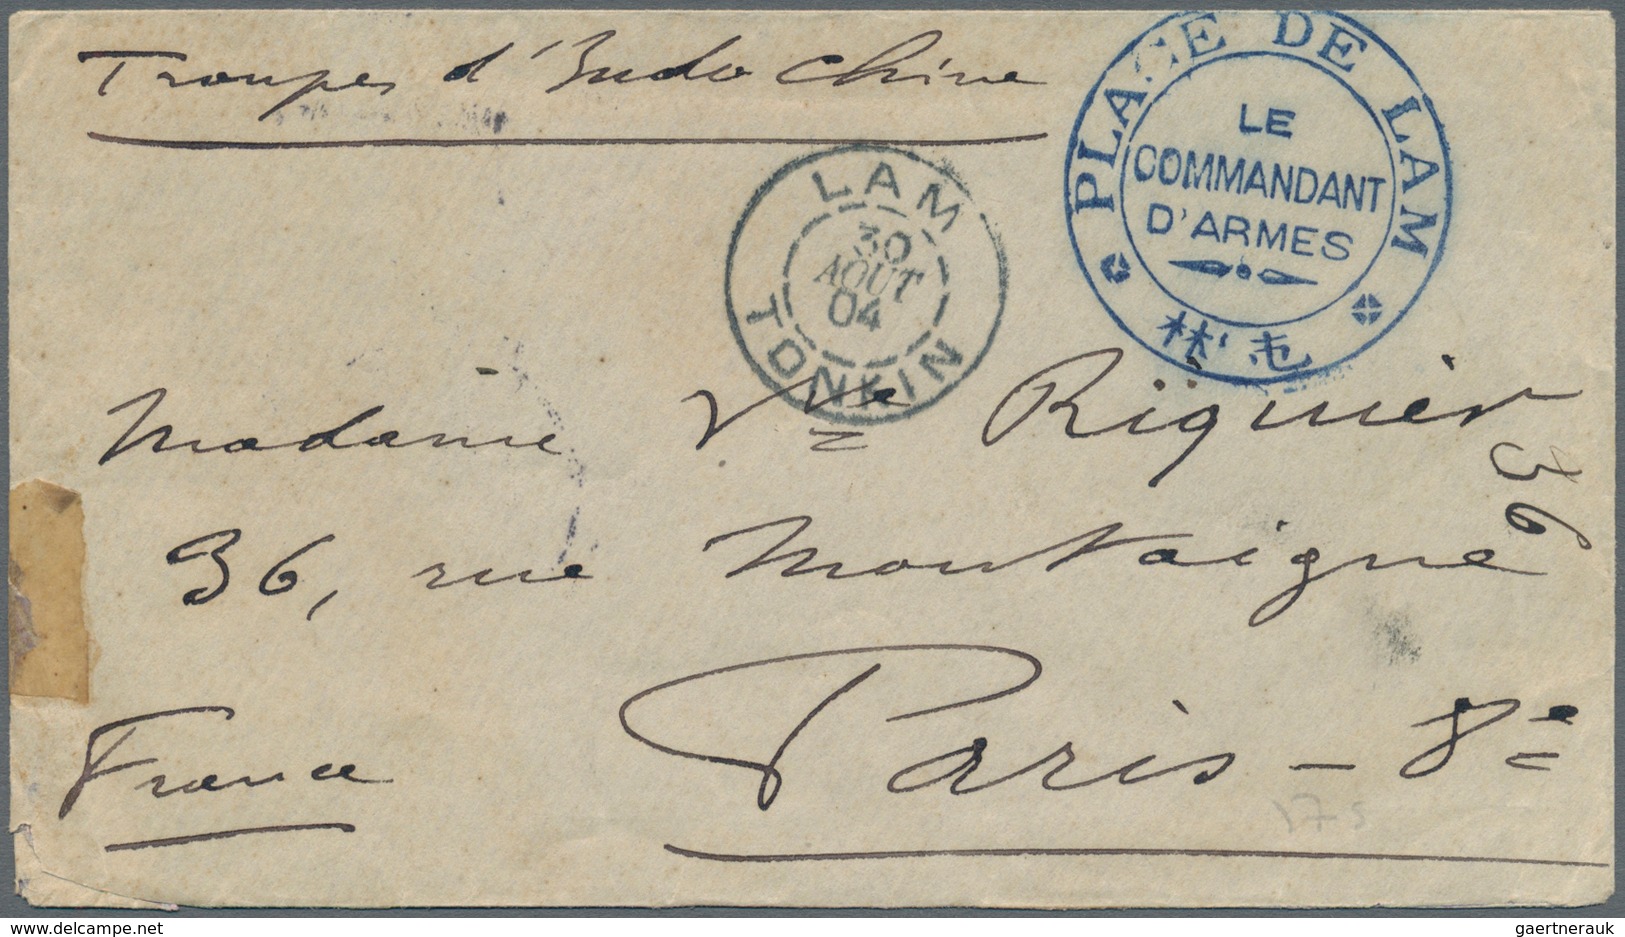 Troupes d'Indo Chine
PLACE DE LAM
LE
COMMANDANT
D'ARMES
LAM
30
AOUT
04
TONKIN
Madame Vve Riquier
36
36, rue Montaigne
Paris - 8e
France
175
www.delcampe.net
gaertnerauk